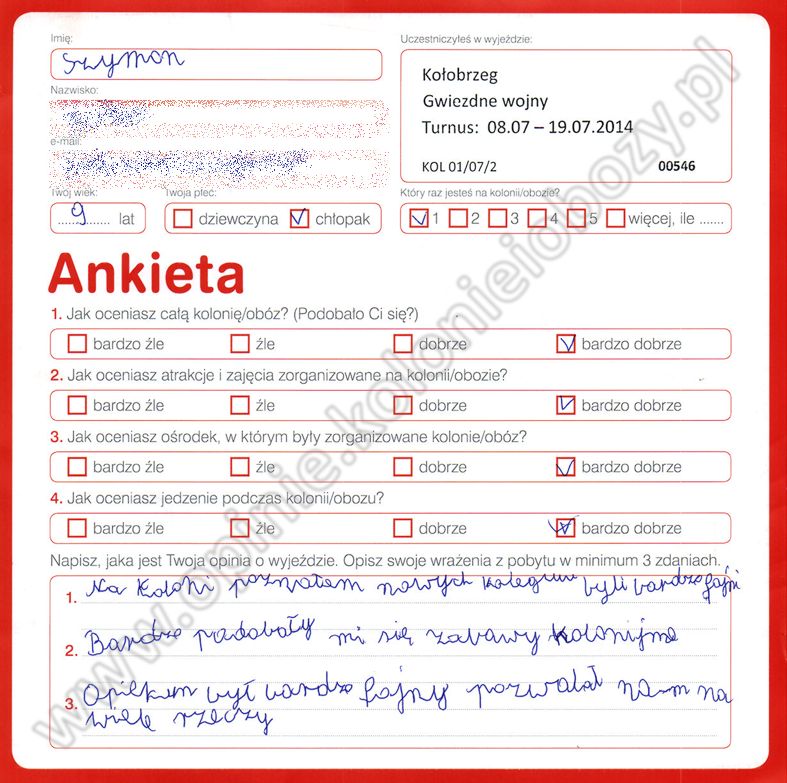 Imię:
Szymon
Nazwisko:
e-mail:
Twój wiek:
9 lat
Twoja płeć:
dziewczyna chłopak
Uczestniczyłeś w wyjeździe:
Kołobrzeg
Gwiezdne wojny
Turnus: 08.07 – 19.07.2014
KOL 01/07/2 00546
Który raz jesteś na kolonii/obozie?
1 2 3 4 5 więcej, ile .......
Ankieta
1. Jak oceniasz całą kolonię/obóz? (Podobało Ci się?)
bardzo źle źle dobrze bardzo dobrze
2. Jak oceniasz atrakcje i zajęcia zorganizowane na kolonii/obozie?
bardzo źle źle dobrze bardzo dobrze
3. Jak oceniasz ośrodek, w którym były zorganizowane kolonie/obóz?
bardzo źle źle dobrze bardzo dobrze
4. Jak oceniasz jedzenie podczas kolonii/obozu?
bardzo źle źle dobrze bardzo dobrze
Napisz, jaka jest Twoja opinia o wyjeździe. Opisz swoje wrażenia z pobytu w minimum 3 zdaniach.
1. Na Koloni poznałem nowych kolegów byli bardzo fajni
2. Bardzo podobały mi się zabawy kolonijne
3. Opiekun był bardzo fajny pozwalał nam na
wiele rzeczy
www.opinie.kolonieiobozy.pl